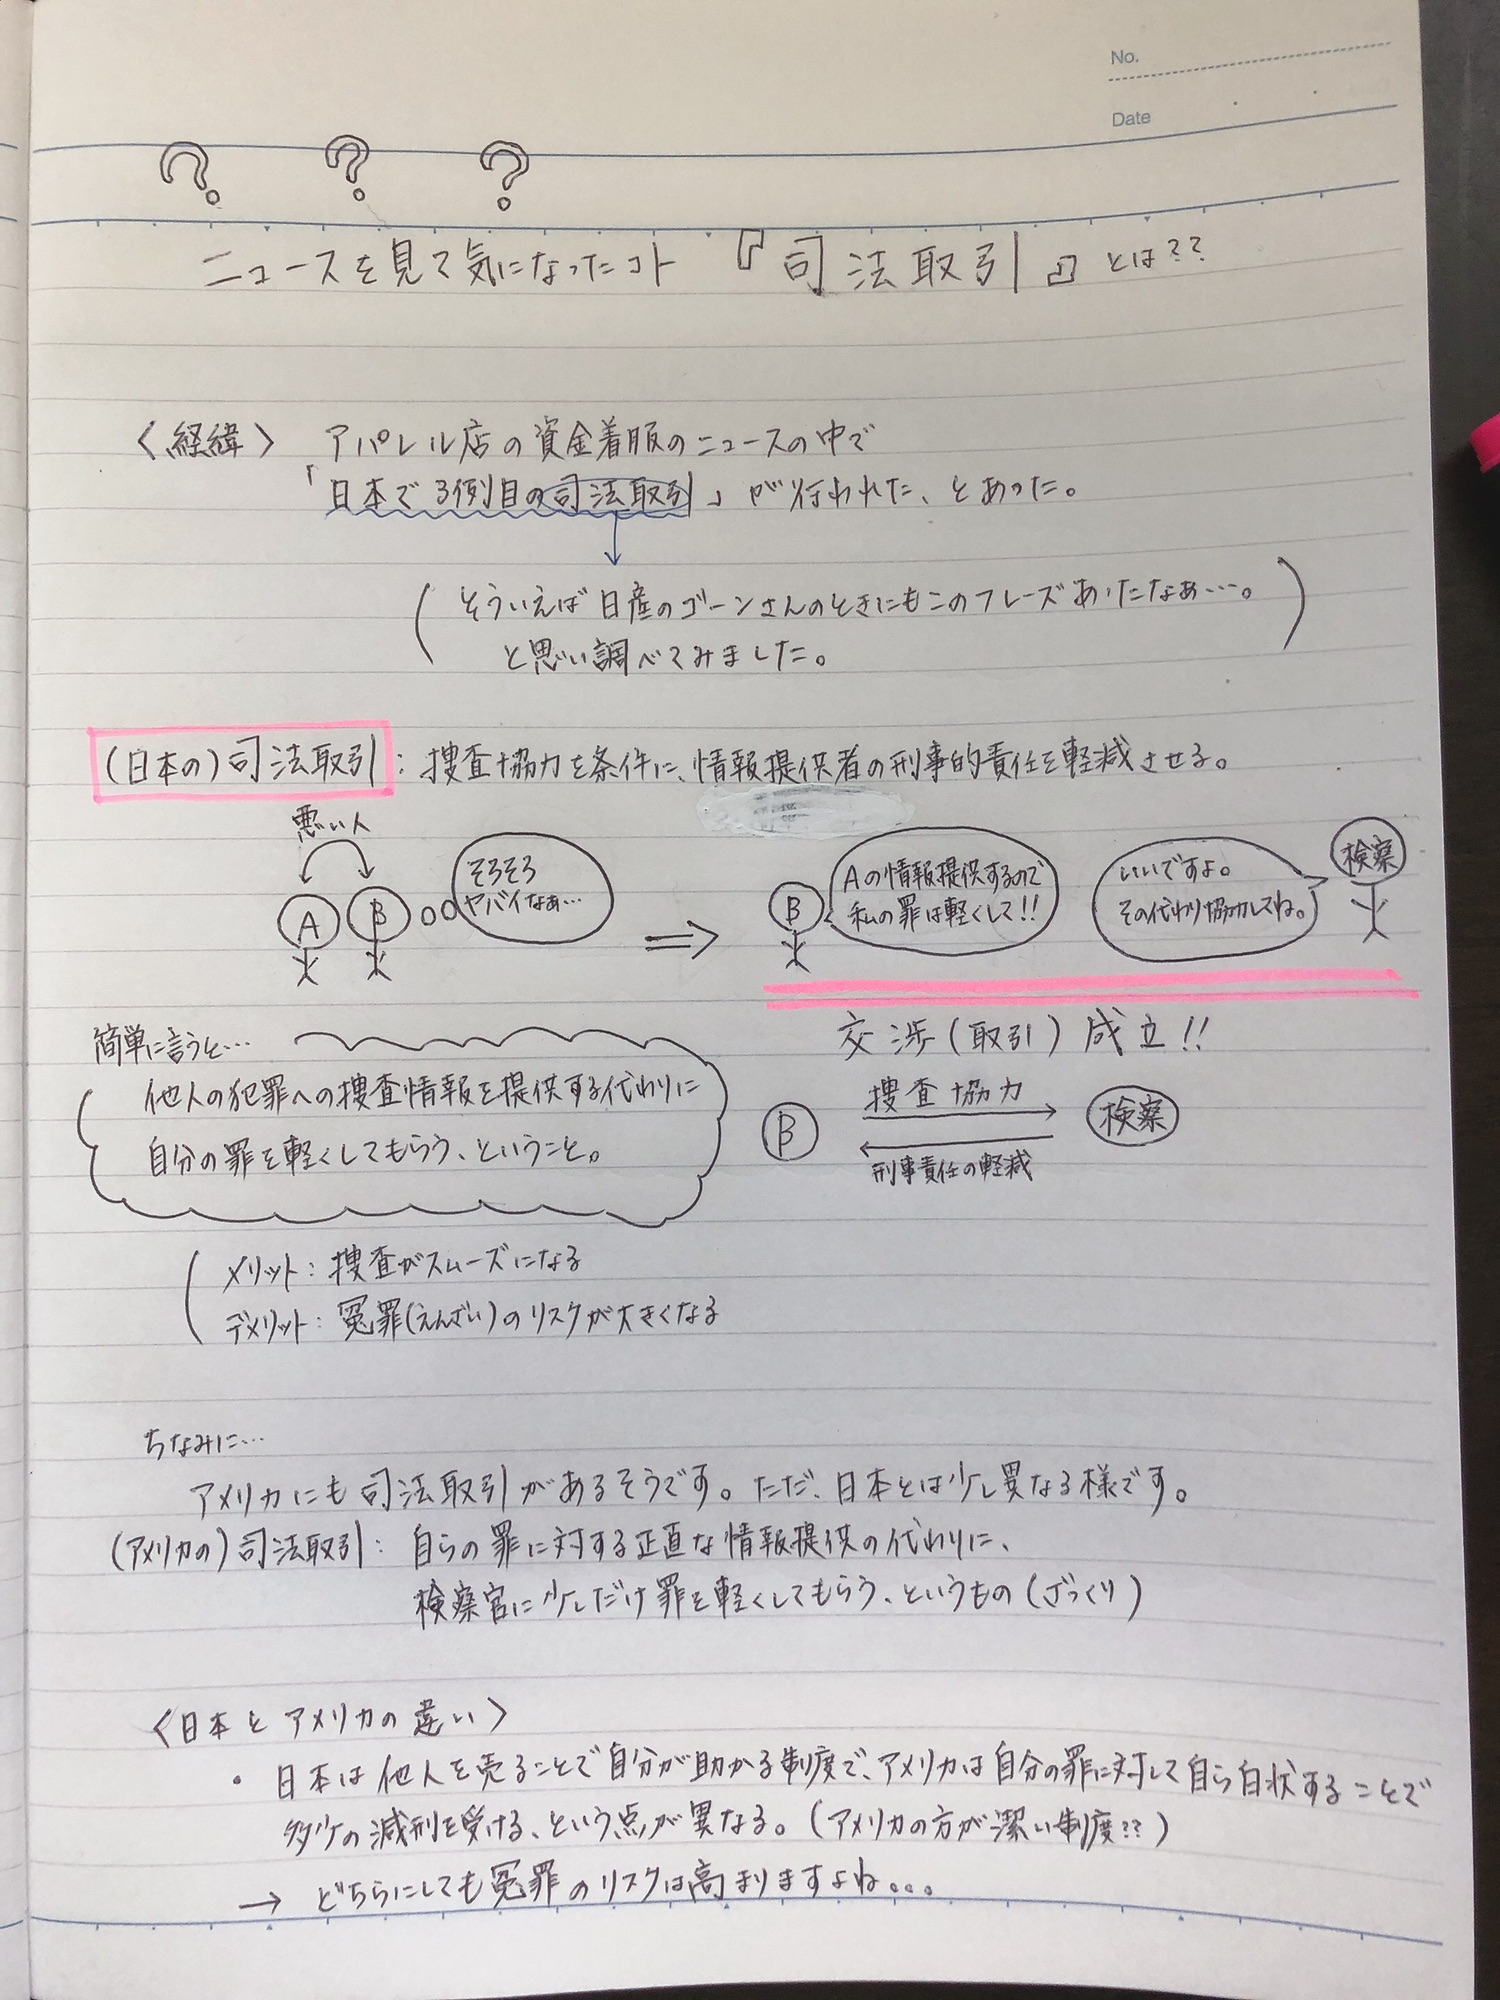 No.
Date
? ? ?
ニュースを見て気になったコト 『司法取引』とは??
〈経緯〉 アパレル店の資金着服のニュースの中で
「日本で3例目の司法取引」が行われた、とあった。
(そういえば日産のゴーンさんのときにもこのフレーズあったなぁ…。
と思い調べてみました。)
(日本の)司法取引:捜査協力を条件に、情報提供者の刑事的責任を軽減させる。
悪い人
A B
そろそろ
ヤバイなぁ…
⇒
B
Aの情報提供するので
私の罪は軽くして!!
いいですよ。
その代わり協力してね。
検察
交渉(取引)成立!!
簡単に言うと…
他人の犯罪への捜査情報を提供する代わりに
自分の罪を軽くしてもらう、ということ。
捜査協力
B → 検察
←
刑事責任の軽減
(メリット:捜査がスムーズになる
デメリット:冤罪(えんざい)のリスクが大きくなる
ちなみに…
アメリカにも司法取引があるそうです。ただ、日本とは少し異なる様です。
(アメリカの)司法取引:自らの罪に対する正直な情報提供の代わりに、
検察官に少しだけ罪を軽くしてもらう、というもの(ざっくり)
〈日本とアメリカの違い〉
・日本は他人を売ることで自分が助かる制度で、アメリカは自分の罪に対して自ら白状することで
多少の減刑を受ける、という点が異なる。(アメリカの方が潔い制度??)
→ どちらにしても冤罪のリスクは高まりますよね...